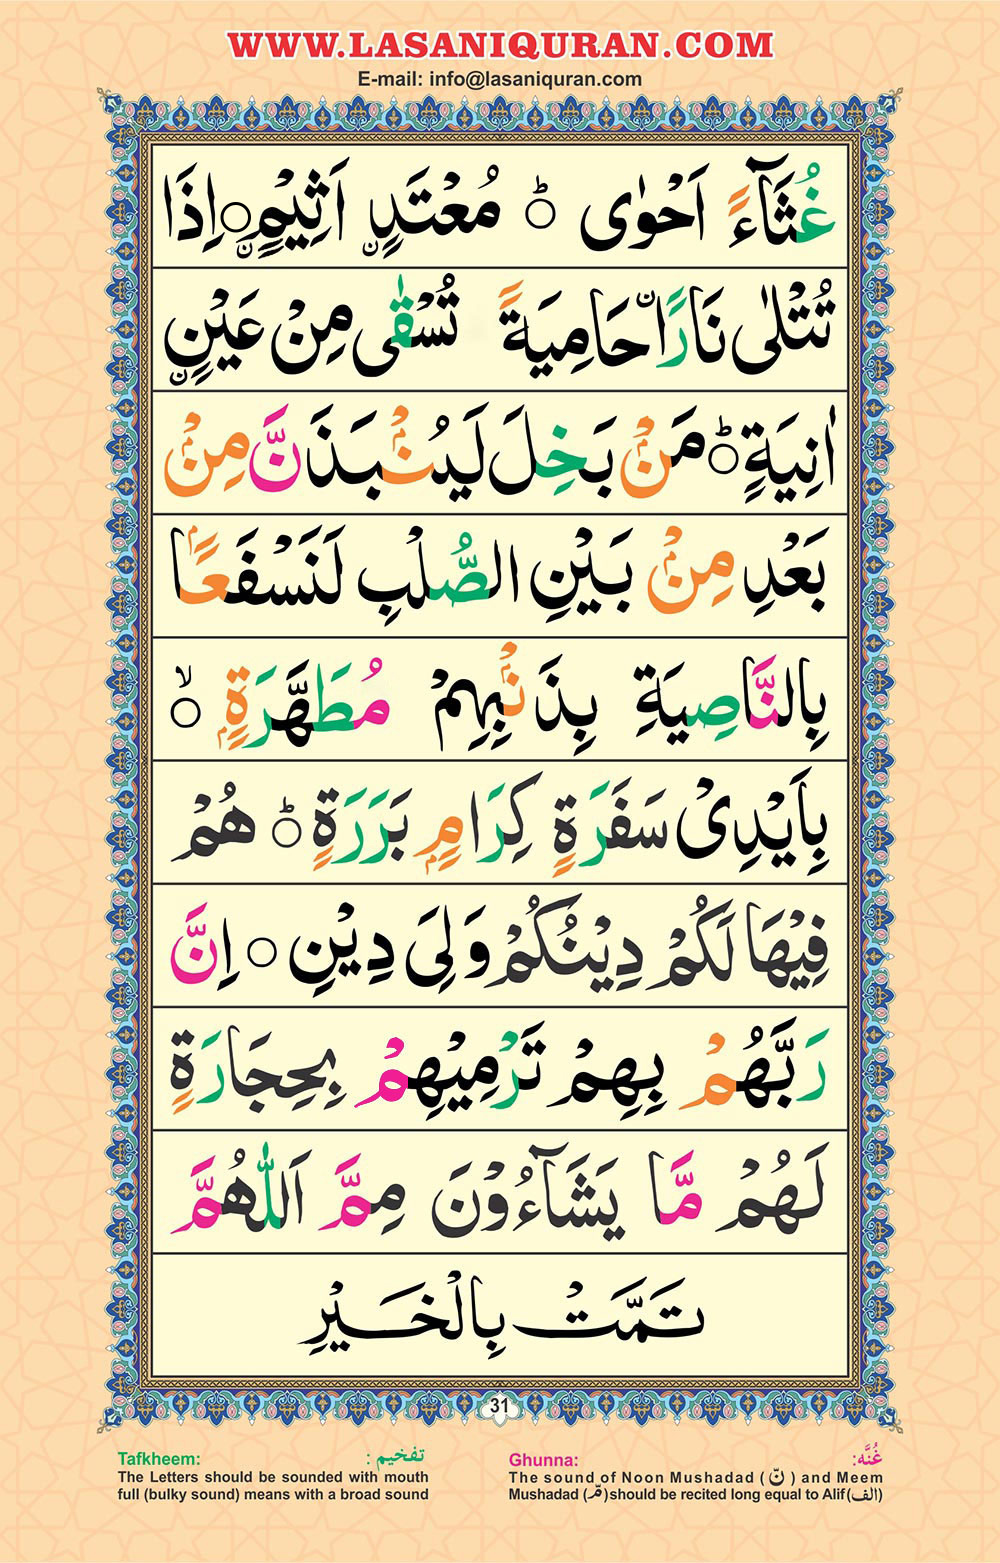 WWW.LASANIQURAN.COM
E-mail: info@lasaniquran.com
غُثَآءً اَحْوٰى ؕ مُعْتَدٍ اَثِيْمٍ اِذَا
تُتْلٰى نَارًا حَامِيَةً تُسْقٰى مِنْ عَيْنٍ
اٰنِيَةٍ ؕ مَنْۢ بَخِلَ لَيُنْۢبَذَنَّ مِنْۢ
بَعْدِ مِنْۢ بَيْنِ الصُّلْبِ لَنَسْفَعًۢا
بِالنَّاصِيَةِ بِذَنْۢبِهِمْ مُطَهَّرَةٍۭ ۙ
بِاَيْدِىْ سَفَرَةٍ كِرَامٍۭ بَرَرَةٍ ؕ هُمْ
فِيْهَا لَكُمْ دِيْنُكُمْ وَلِىَ دِيْنِ ۝ اِنَّ
رَبَّهُمْ بِهِمْ تَرْمِيْهِمْ بِحِجَارَةٍ
لَهُمْ مَّا يَشَآءُوْنَ مِمَّ اَللّٰهُمَّ
تَمَّتْ بِالْخَيْرِ
31
Tafkheem: تفخيم :
The Letters should be sounded with mouth
full (bulky sound) means with a broad sound
Ghunna: غُنَّه:
The sound of Noon Mushadad ( نّ ) and Meem
Mushadad (مّ) should be recited long equal to Alif (الف)